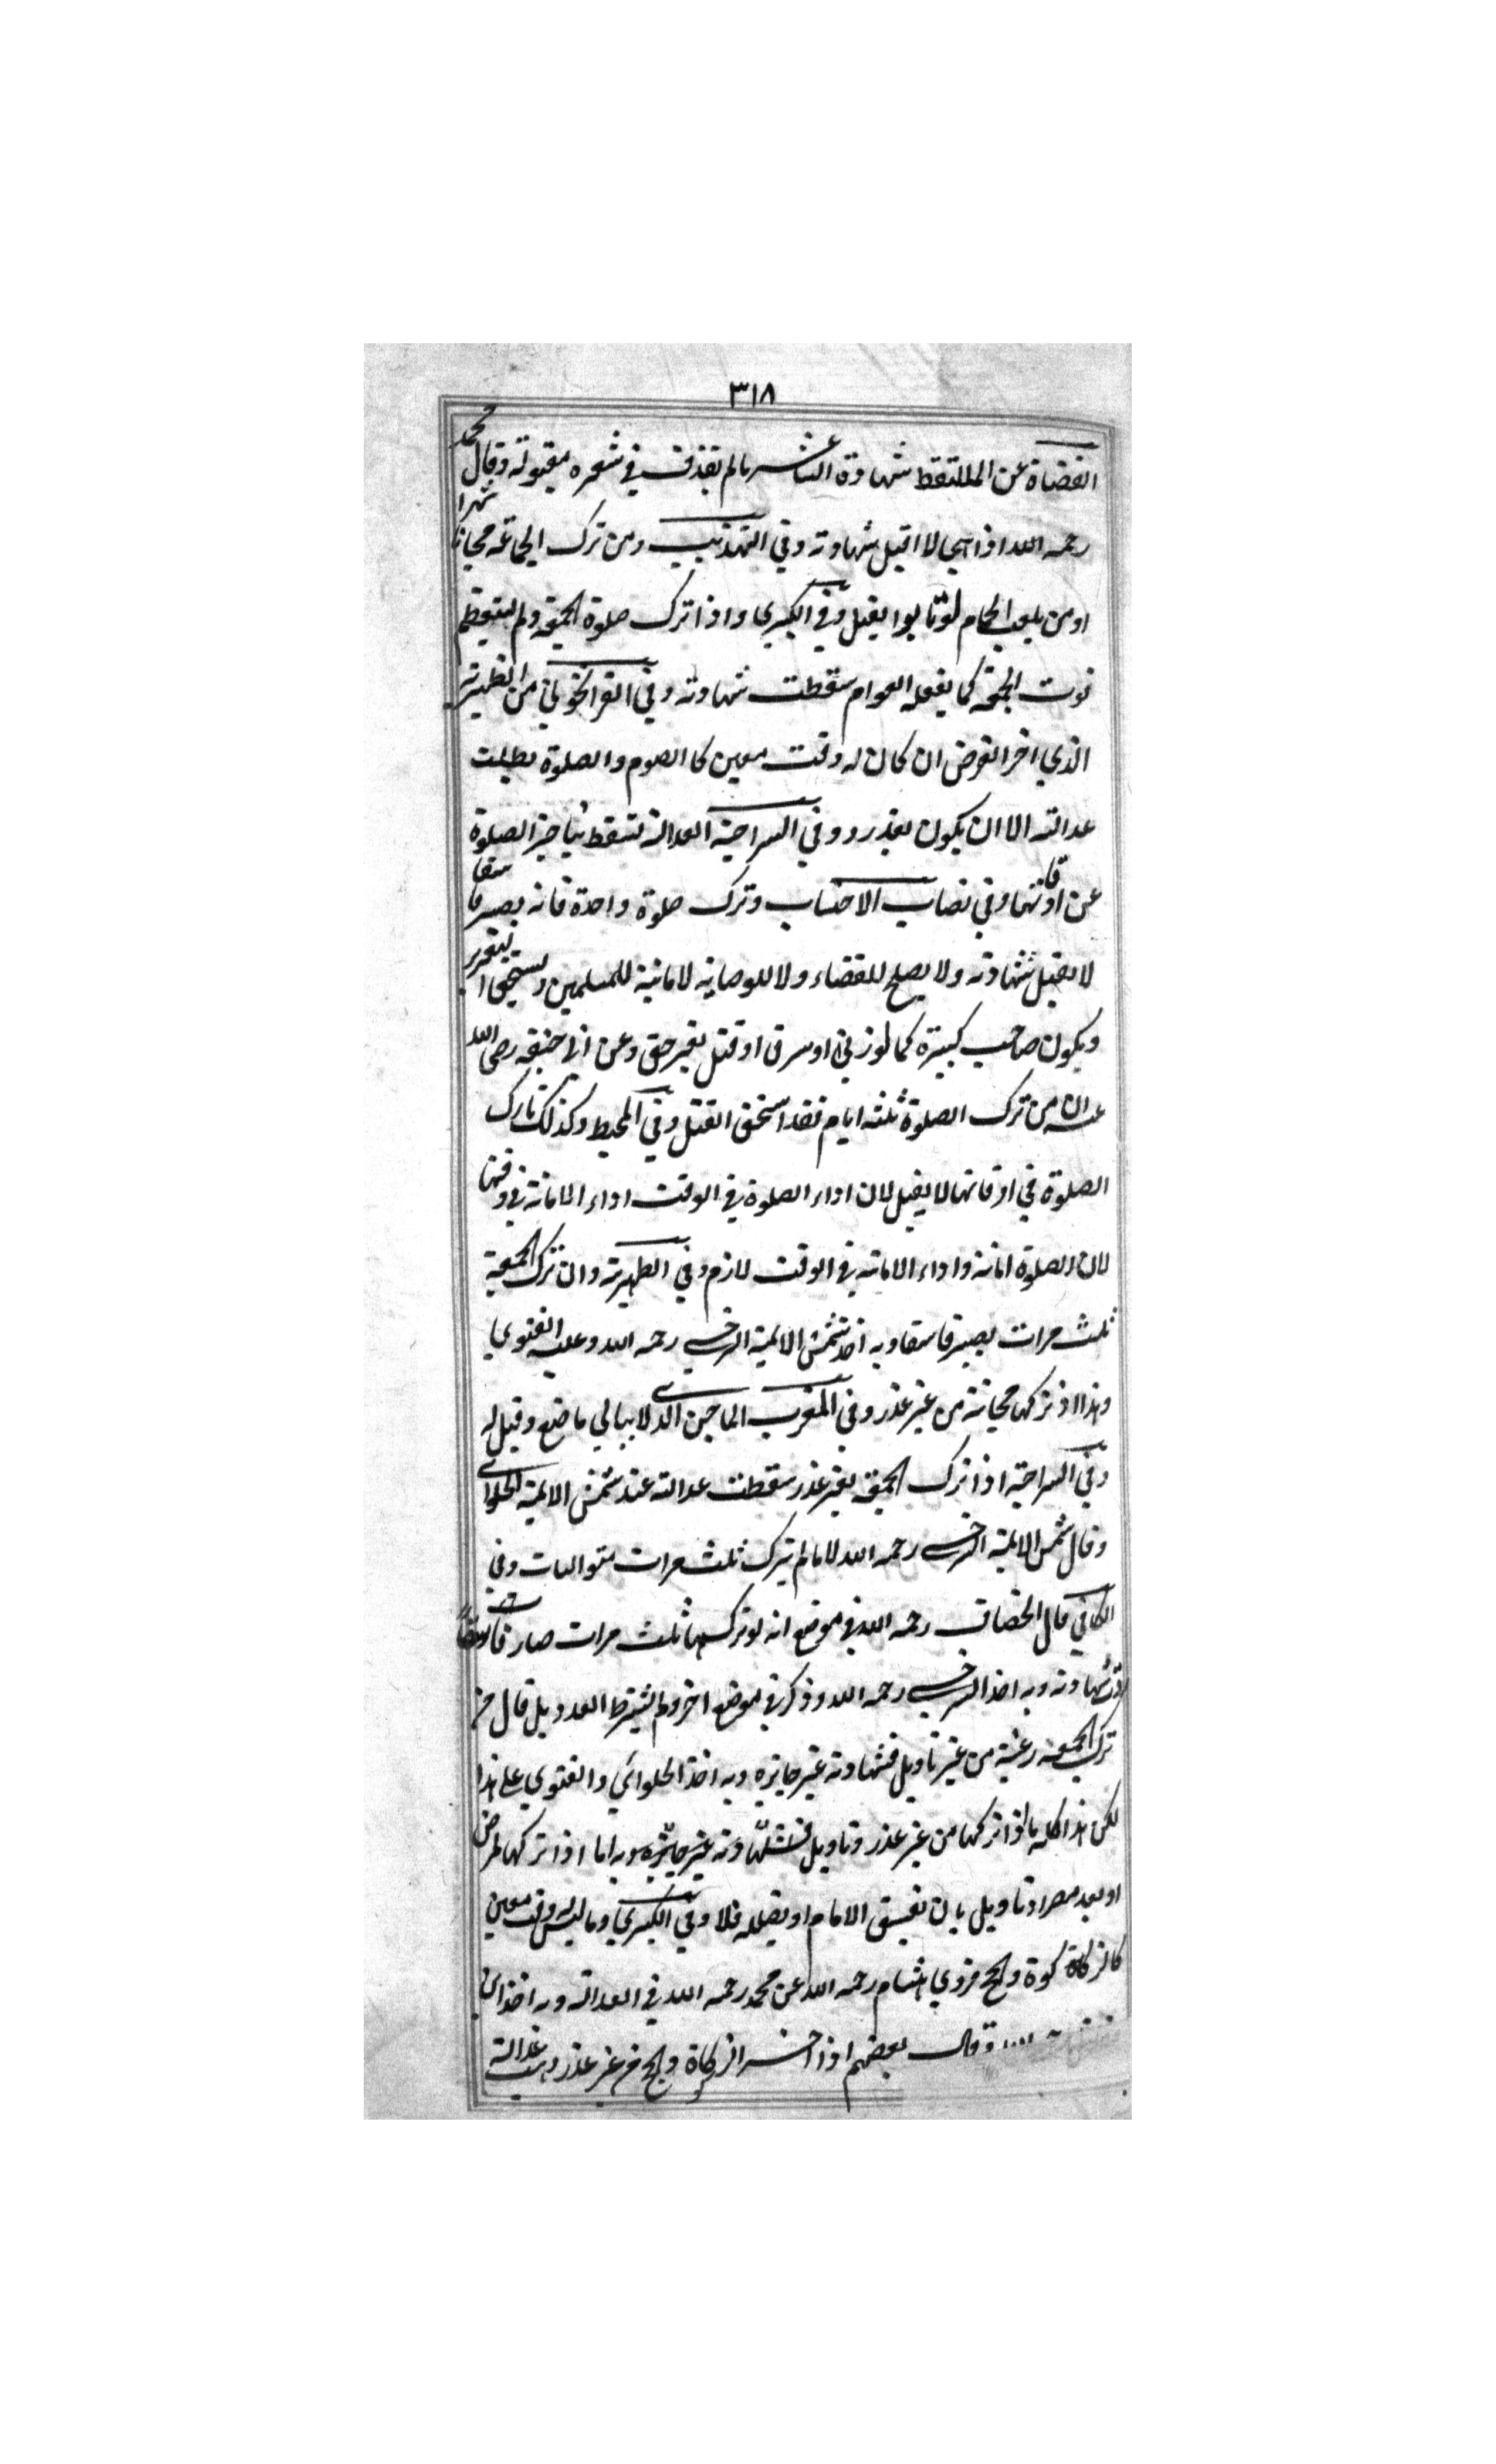 ٣١٨
القضاة عن الملتقط شهادة الشاعر مالم يقذف في شعره مقبولة وقال محمد
رحمه الله اذا هجى لا اقبل شهادته وفي التهذيب ومن ترك الجماعة مجانا شهرا
او من يلعب الحمام لو تابوا يقبل وفي الكبرى واذا ترك صلوة الجمعة ولم يستعظم
فوت الجمعة كما يفعله العوام سقطت شهادته وفي الفراخواني من الظهيرية
الذي اخر الفرض ان كان له وقت معين كالصوم والصلوة بطلت
عدالته الا ان يكون بعذر وفي السراجية العدالة تسقط بتاخير الصلوة
عن اوقاتها وفي نصاب الاحتساب وترك صلوة واحدة فانه يصير فاسقا
لا يقبل شهادته ولا يصلح للقضاء ولا للوصاية لامانية للمسلمين ويستحق التعزير
ويكون صاحب كبيرة كما لو زنى او سرق او قتل بغير حق وعن ابي حنيفه رضى الله
عنه ان من ترك الصلوة ثلثه ايام فقد استحق القتل وفي المحيط وكذلك تارك
الصلوة في اوقاتها لا يقبل لان اداء الصلوة في الوقت اداء الامانة في وقتها
لان الصلوة امانة واداء الامانه في الوقت لازم وفي الظهيرية وان ترك الجمعة
ثلث مرات يصير فاسقا وبه اخذ شمس الايمة السرخسي رحمه الله وعليه الفتوي
وهذا اذ تركها مجانة من غير عذر وفي المغرب الماجن الذي لا يبالي ما صنع وقيل له
وفي السراجية اذا ترك الجمعة بغير عذر سقطت عدالته عند شمس الايمة الحلواي
وقال شمس الايمة السرخسي رحمه الله لا مالم يترك ثلث مرات متواليات وفي
الكافي قال الخصاف رحمه الله في موضع انه لو تركها ثلث مرات صار فاسقا
ردت شهادته وبه اخذ السرخسي رحمه الله وذكر في موضع اخر ولم يشترط العدد بل قال من
ترك الجمعة رغبة من غير تاويل فشهادته غير جايزه وبه اخذ الحلوائي والفتوي على هذا
لكن هذا كله اذا تركها من غير عذر وتاويل فشهادته غير جايزه وبه اما اذا تركها لمرض
او بعد مصر او تاويل بان يفسق الامام او يضلله فلا وفي الكبري وما ليس له وقت معين
كالزكاة كوة والحج فروي هشام رحمه الله عن محمد رحمه الله في العدالة وبه اخذ
وقال بعضهم اذا اخر الزكاة والحج من غير عذر ذهبت عدالته